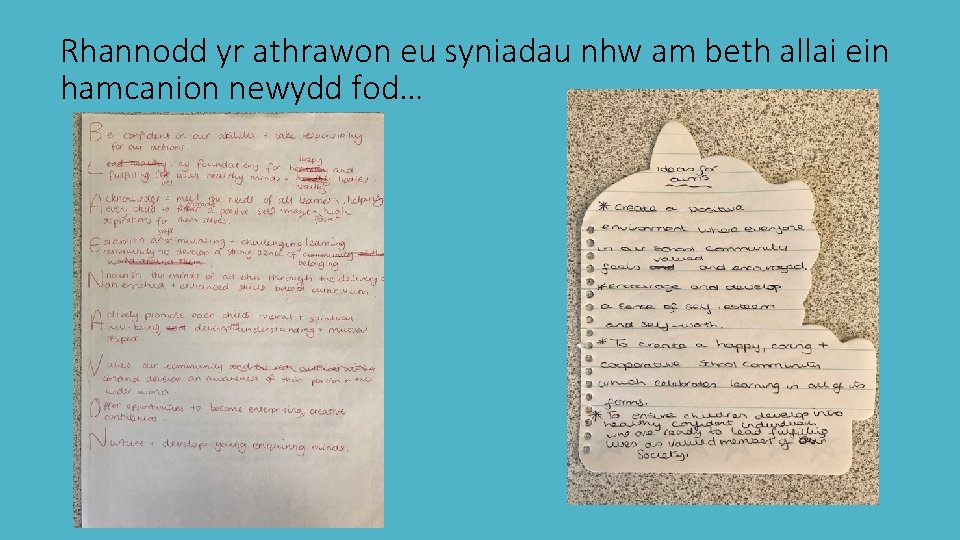 Rhannodd yr athrawon eu syniadau nhw am beth allai ein
hamcanion newydd fod...
Be confident in our abilities + take responsibility
for our actions.
Lead healthy, lay foundations for happy and
fulfilling life with healthy minds + bodies
Acknowledge + meet the needs of all learners, helping
every child to promote a positive self image + high
aspirations for them selves.
Establish safe stimulating + challenging learning
community to develop a strong sense of community
world around them belonging.
Nourish the minds of all chn through the delivery of
an enriched + enhanced skills based curriculum
Actively promote each childs moral + spiritual
well-being and develop understanding + mutual
respect
Value our community
and develop an awareness of their position in the
wider world
Offer opportunities to become enterprising, creative
contributors.
Nurture + develop young enquiring minds.
Ideas for
aims
* Create a positive
environment where everyone
in our school community
feels valued and encouraged.
* Encourage and develop
a sense of self-esteem
and self-worth.
* To create a happy, caring +
cooperative school community
which celebrates learning in all of its
forms.
* To ensure children develop into
healthy confident individuals
who are ready to lead fulfilling
lives as valued members of our
Society.